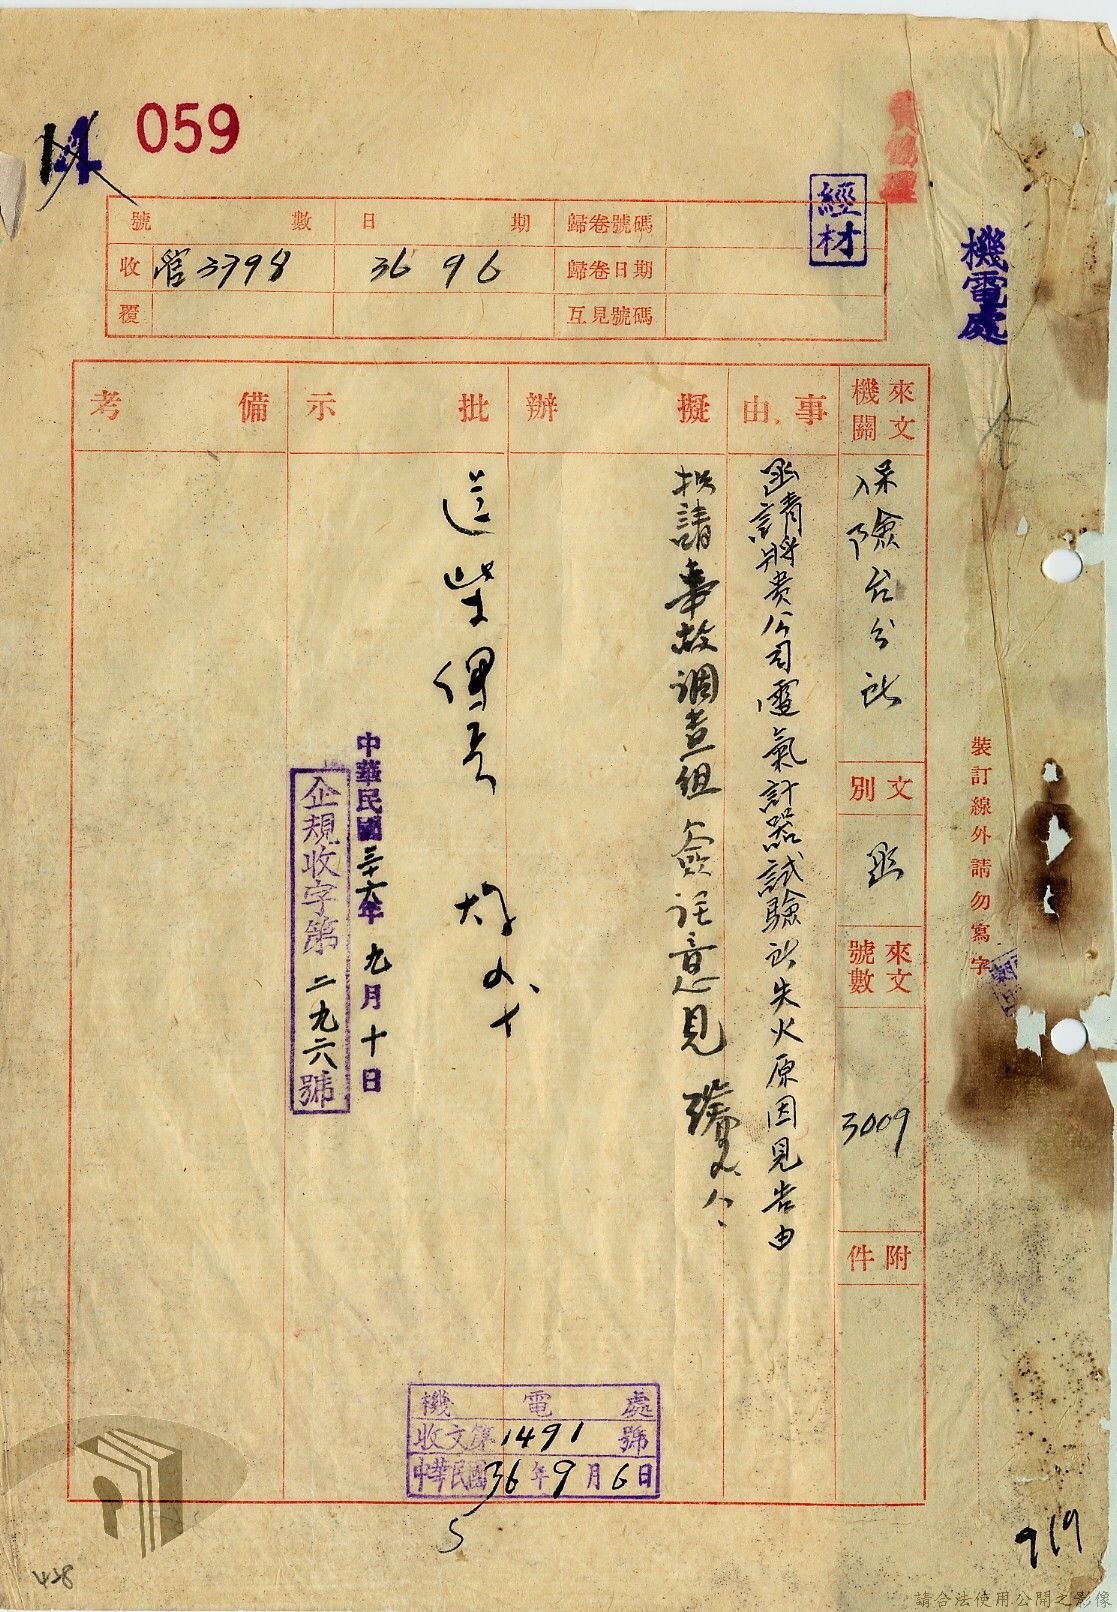 059
14
經材
機電處
號數
日期
歸卷號碼
收
管3798
36 9 6
歸卷日期
覆
互見號碼
來文機關
保險台分所
文別
函
來文號數
3009
附件
事由
函請將貴公司電氣計器試驗所失火原因見告由
擬辦
擬請事故調查組簽註意見
批示
備考
中華民國三十六年九月十日
企規收字第二九六號
機電處
收文第1491號
中華民國36年9月6日
裝訂線外請勿寫字
5
919
438
請合法使用公開之影像